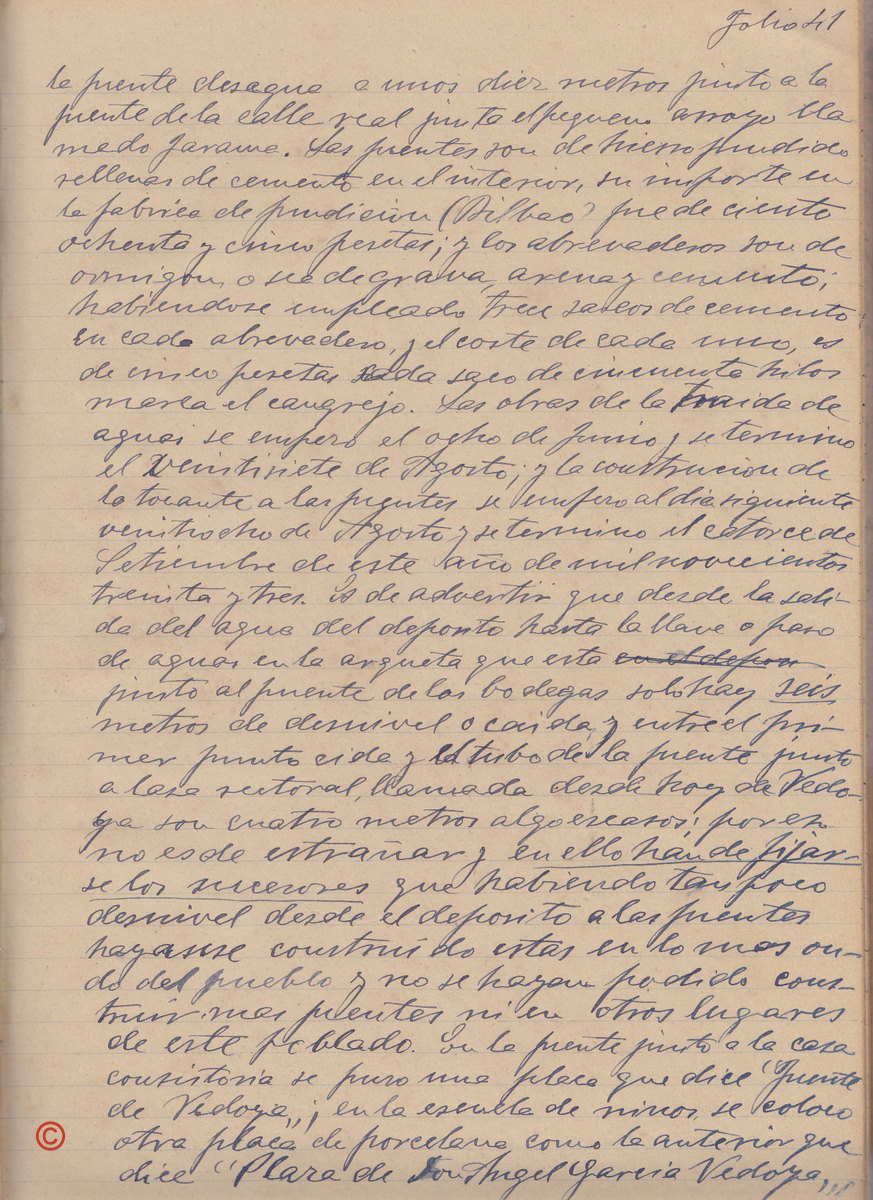 Folio 41
la fuente desagua a unos diez metros junto a la
fuente de la calle real junto el pequeno arroyo lla
medo Jarama. Las fuentes son de hierro fundido
rellenas de cemento en el interior, su importe en
la fabrica de fundicion (Bilbao) fue de ciento
ochenta y cinco pesetas; y los abrevaderos son de
ormigon, o sea de grava, arena y cemento;
habiendose empleado trece sacos de cemento
en cada abrevadero, y el coste de cada uno, es
de cinco pesetas cada saco de cincuenta kilos
marca el cangrejo. Las obras de la traida de
aguas se empezo el ocho de Junio y se termino
el veintisiete de Agosto; y la construcion de
lo tocante a las fuentes se empezo al dia siguiente
veintiocho de Agosto y se termino el catorce de
Setiembre de este año de mil novecientos
treinta y tres. Es de advertir que desde la sali-
da del agua del deposito hasta la llave o paso
de aguas en la arqueta que esta en el depos
junto al puente de las bodegas solo hay seis
metros de desnivel o caida, y entre el pri-
mer punto cida y el tubo de la fuente junto
a la sa rectoral, llamada desde hoy de Vedo-
ya son cuatro metros algo escasos; por eso
no es de estrañar y en ello han de fijar-
se los sucesores que habiendo tan poco
desnivel desde el deposito a las fuentes
hayanse construido estas en lo mas on-
do del pueblo y no se hayan podido cons-
truir mas fuentes ni en otros lugares
de este poblado. En la fuente junto a la casa
consistoria se puso una placa que dice "Fuente
de Vedoya"; en la escuela de ninos se coloco
otra placa de porcelana como la anterior que
dice "Plaza de Don Angel Garcia Vedoya"
©